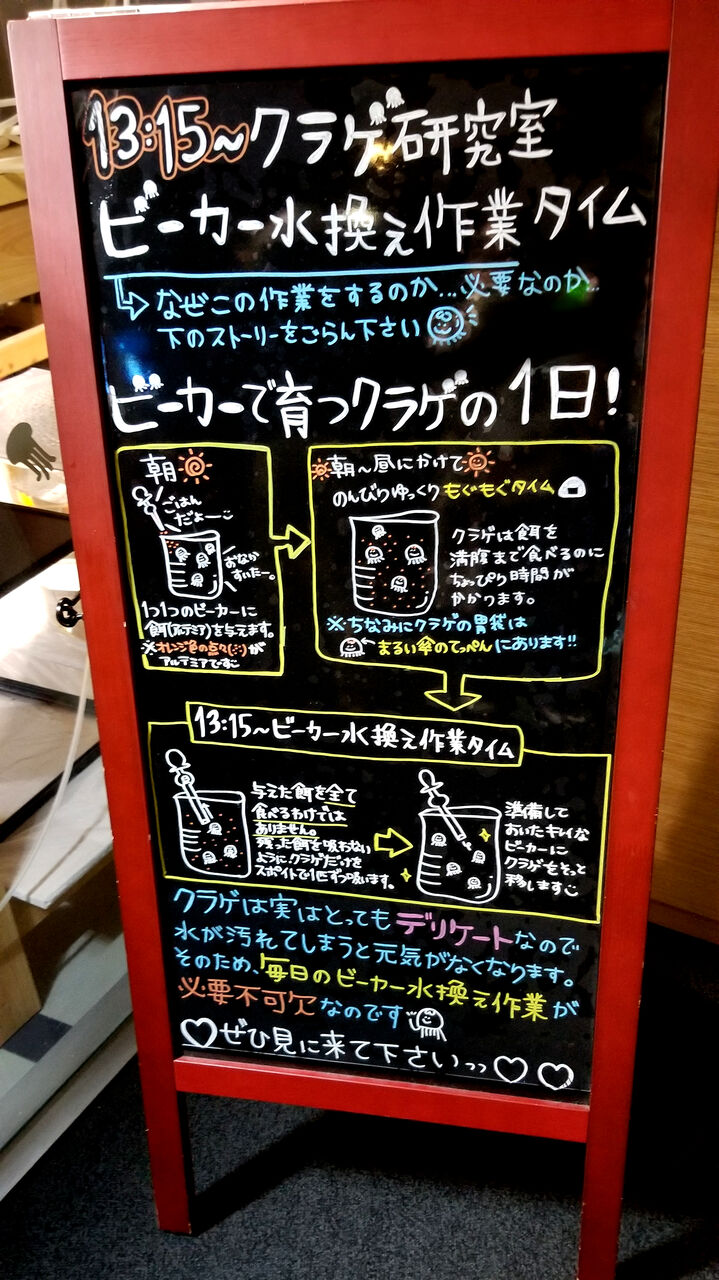 13:15～クラゲ研究室
ビーカー水換え作業タイム
なぜこの作業をするのか…必要なのか…
下のストーリーをごらん下さい
ビーカーで育つクラゲの1日!
朝
ごはん
だよー
おなか
すいたー。
1つ1つのビーカーに
餌(アルテミア)を与えます。
※オレンジ色の点々(∵)が
アルテミアです
朝～昼にかけて
のんびりゆっくりもぐもぐタイム
クラゲは餌を
満腹まで食べるのに
ちょっぴり時間が
かかります。
※ちなみにクラゲの胃袋は
まるい傘のてっぺんにあります!!
13:15～ビーカー水換え作業タイム
与えた餌を全て
食べるわけでは
ありません。
残った餌を吸わない
ようにクラゲだけを
スポイトで1匹ずつ吸います。
準備して
おいたキレイな
ビーカーに
クラゲをそっと
移します
クラゲは実はとってもデリケートなので
水が汚れてしまうと元気がなくなります。
そのため、毎日のビーカー水換え作業が
必要不可欠なのです
♡ぜひ見に来て下さいっっ♡♡